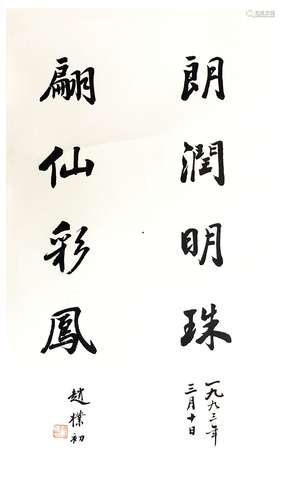 朗潤明珠
一九九三年
三月十日
翩仙彩鳳
趙樸初